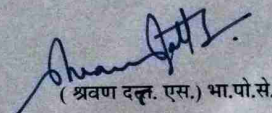 ( श्रवण दत्त. एस.) भा.पो.से.